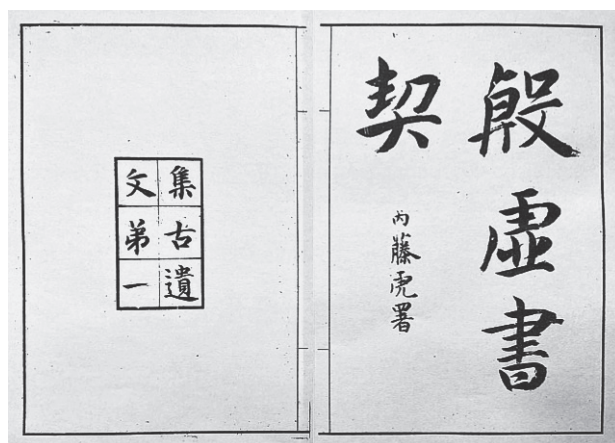 殷虛書
契
内藤虎署
集古遺
文弟一